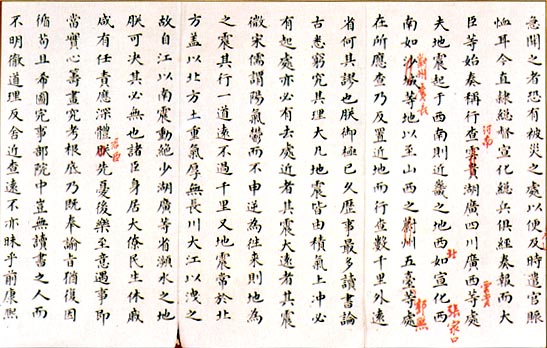 意聞之者恐有被災之處以便及時遣官賑
恤耳今直隷總督宣化総兵俱經奏報而大
臣等始奏稱行查雲貴湖廣四川廣西等處
河南
夫地震起于西南則近畿之地西如宣化西
北
張家口
南如沙城等地以至山西之州五臺等處
在所應查乃反置近地而行查數千里外遠
省何其謬也朕御極已久歷事最多讀書論
古悉窮究其理大凡地震皆由積氣上冲必
有起處亦必有去處近者其震大遠者其震
微宋儒謂陽氣鬱而不申逆為徃来則地為
之震其行一道遠不過千里又地震常於北
方盖以北方土重氣厚無長川大江以洩之
故自江以南震動絶少湖廣等省瀕水之地
朕可決其必無也諸臣身居大僚民生休戚
咸有任責應深體朕先憂後樂至意遇事即
當實心籌畫究考根底乃既奉諭旨猶復因
循苟且希圖完事部院中豈無讀書之人而
不明徹道理反舍近查遠不亦昧乎前康熙